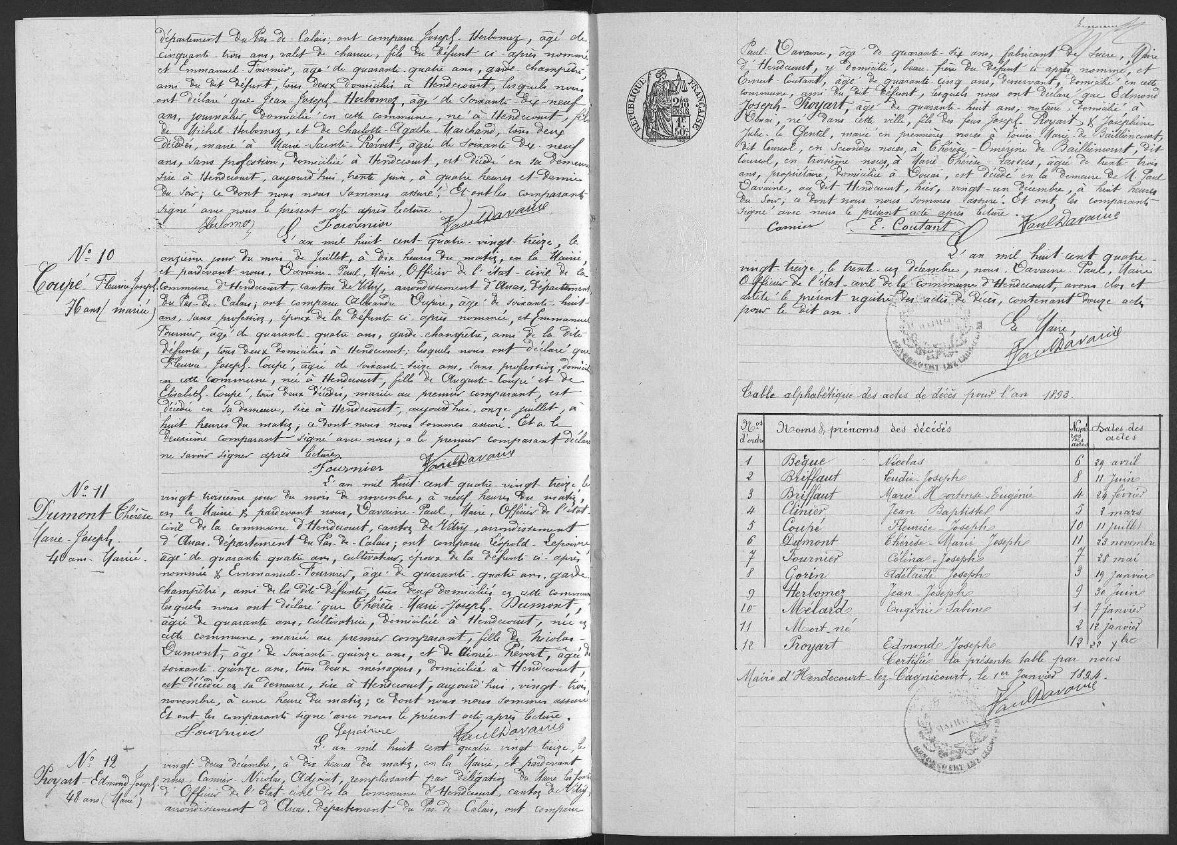 département du Pas-de-Calais; ont comparu Joseph Herbomez, âgé de
cinquante trois ans, valet de charrue, fils du défunt ci-après nommé
et Emmanuel Fournier, âgé de quarante quatre ans, garde champêtre
ami du dit défunt, tous deux domiciliés à Hendecourt, lesquels nous
ont déclaré que Jean-Joseph Herbomez, âgé de soixante-dix neuf
ans, journalier, domicilié en cette commune, né à Hendecourt, fils
de Michel Herbomez, et de Charlotte-Agathe Marchand, tous deux
décédés, marié à Marie-Sainte Prévost, âgée de soixante dix neuf
ans, sans profession, domiciliée à Hendecourt, est décédé en sa demeure
sise à Hendecourt, aujourd'hui trente juin, à quatre heures et demie
du soir; ce dont nous nous sommes assuré; Et ont les comparants
signé avec nous le présent acte après lecture.
Herbomez Fournier Paul Davaine
N° 10
Coupé Fleurie Joseph
76 ans (mariée)
L'an mil huit cent quatre-vingt-treize, le
onzième jour du mois de Juillet, à dix heures du matin, en la Mairie,
et pardevant nous, Davaine-Paul, Maire, Officier de l'état-civil de la
Commune d'Hendecourt, canton de Vitry, arrondissement d'Arras, Département
du Pas-de-Calais; ont comparu Alexandre âgé de soixante-huit
ans, sans profession, époux de la défunte ci-après nommée, et Emmanuel
Fournier, âgé de quarante-quatre ans, garde-champêtre, ami de la dite
défunte, tous deux domiciliés à Hendecourt, lesquels nous ont déclaré que
Fleurie-Joseph Coupé, âgée de soixante-seize ans, sans profession, domiciliée
en cette commune, née à Hendecourt, fille de Augustin Coupé et de
Elisabeth Coupé, tous deux décédés, mariée au premier comparant, est
décédée en sa demeure, sise à Hendecourt, aujourd'hui onze juillet, à
huit heures du matin; ce dont nous nous sommes assuré. Et a le
deuxième comparant signé avec nous; a le premier comparant déclaré
ne savoir signer après lecture
Fournier Paul Davaine
N° 11
Dumont Thérèse
Marie-Joseph
40 ans Mariée
L'an mil huit cent quatre vingt treize, le
vingt troisième jour du mois de novembre, à neuf heures du matin,
en la Mairie & pardevant nous, Davaine-Paul, Maire, Officier de l'état-
civil de la commune d'Hendecourt, canton de Vitry, arrondissement
d'Arras, Département du Pas-de-Calais; ont comparu Léopold
âgé de quarante quatre ans, cultivateur, époux de la défunte ci-après
nommée & Emmanuel Fournier, âgé de quarante-quatre ans, garde
champêtre, ami de la dite défunte, tous deux domiciliés en cette commune
lesquels nous ont déclaré que Thérèse-Marie-Joseph Dumont,
âgée de quarante ans, cultivatrice, domiciliée à Hendecourt, née en
cette commune, mariée au premier comparant, fille de Nicolas
Dumont, âgé de soixante-quinze ans, et de Aimée Prévost, âgée de
soixante-quinze ans, tous deux ménagers, domiciliés à Hendecourt
est décédée en sa demeure, sise à Hendecourt, aujourd'hui, vingt-trois
novembre, à une heure du matin; ce dont nous nous sommes assuré
Et ont les comparants signé avec nous le présent acte après lecture.
Fournier Paul Davaine
N° 12
Proyart-Edmond-Joseph
48 ans (Marié)
L'an mil huit cent quatre vingt treize, le
vingt deux décembre, à dix heures du matin, en la Mairie, et pardevant
nous, Camier Nicolas, Adjoint, remplissant par délégation du Maire les fonctions
d'Officier de l'Etat-civil de la Commune d'Hendecourt, canton de Vitry,
arrondissement d'Arras, département du Pas de Calais, ont comparu
Paul Davaine, âgé de quarante-dix ans, fabricant de sucre, Maire
d'Hendecourt, y domicilié, beau-frère du défunt ci après nommé, et
Ernest Coutant, âgé de quarante cinq ans, domicilié en cette
commune, ami du dit défunt, lesquels nous ont déclaré que Edmond
Joseph Proyart, âgé de quarante-huit ans, notaire, domicilié à
Douai, né dans cette ville, fils des feus Joseph Proyart & Joséphine
Julie Le Gentil, marié en premières noces à Louise Marie de Baillencourt,
dit Courcol, en secondes noces, à Thérèse-Omérine de Baillencourt, dit
Courcol, en troisième noces, à Marie Thérèse âgée de trente trois
ans, propriétaire, domiciliée à Douai, est décédé en la demeure de M. Paul
Davaine, au dit Hendecourt, hier, vingt-un décembre, à huit heures
du soir, ce dont nous nous sommes assuré. Et ont les comparants
signé avec nous le présent acte après lecture.
Camier E. Coutant Paul Davaine
REPUBLIQUE FRANÇAISE
L'an mil huit cent quatre-
vingt treize, le trente-un décembre, nous, Davaine-Paul, Maire
Officier de l'état-civil de la commune d'Hendecourt, avons clos et
arrêté le présent registre des actes de décès, contenant douze actes
pour le dit an.
Le Maire,
Paul Davaine
Table alphabétique des actes de décès pour l'an 1893
Nos d'ordre Noms & prénoms des décédés Numéros des actes Dates des actes
1 Bègue Nicolas 6 29 avril
2 Briffaut Joseph 8 11 juin
3 Briffaut Marie Hortense Eugénie 4 24 février
4 Jean Baptiste 5 2 mars
5 Coupé Fleurie Joseph 10 11 juillet
6 Dumont Thérèse-Marie Joseph 11 23 novembre
7 Fournier Célina Joseph 7 28 mai
8 Gorin Adélaïde Joseph 3 19 janvier
9 Herbomez Jean-Joseph 9 30 juin
10 Mélard Eugénie Sabine 1 7 janvier
11 Mort-né 2 12 janvier
12 Proyart Edmond Joseph 12 22 Xbre
Certifié la présente table par nous
Maire d'Hendecourt-lez-Cagnicourt, le 1er Janvier 1894.
Paul Davaine